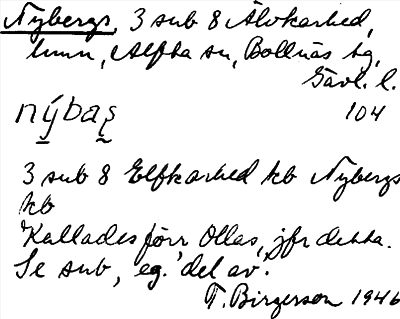 Nybergs, 3 sub 8 Älvkarhed,
hmn, Alfta sn, Bollnäs tg,
Gävl. l.
nýbas̨ 104
3 sub 8 Elfkarhed kb Nybergs
kb
Kallades förr Ollas, jfr detta.
Se sub, eg. del av.
T. Birgerson 1946